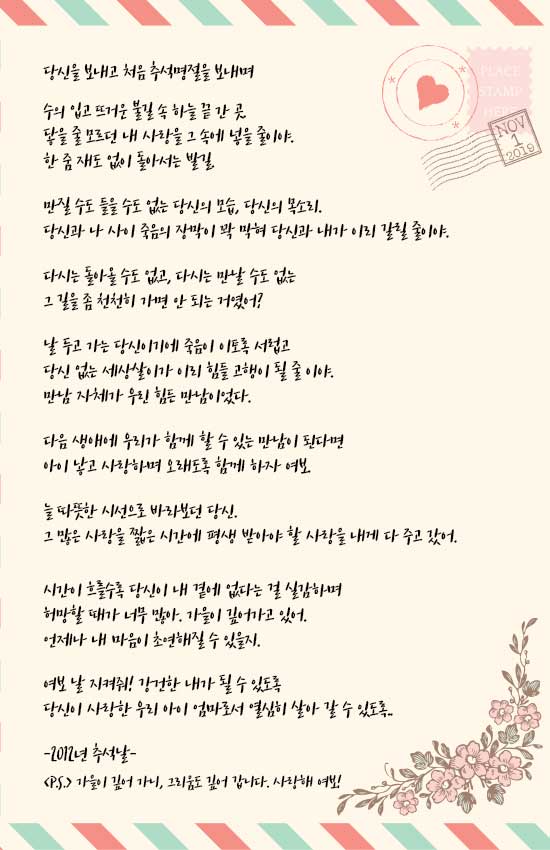 당신을 보내고 처음 추석명절을 보내며
PLACE
STAMP
HERE
NOV
1
2019
수의 입고 뜨거운 불길 속 하늘 끝 간 곳.
닿을 줄 모르던 내 사랑을 그 속에 넣을 줄이야.
한 줌 재도 없이 돌아서는 발길.
만질 수도 들을 수도 없는 당신의 모습, 당신의 목소리.
당신과 나 사이 죽음의 장막이 꽉 막혀 당신과 내가 이리 갈릴 줄이야.
다시는 돌아올 수도 없고, 다시는 만날 수도 없는
그 길을 좀 천천히 가면 안 되는 거였어?
날 두고 가는 당신이기에 죽음이 이토록 서럽고
당신 없는 세상살이가 이리 힘들 고행이 될 줄 이야.
만남 자체가 우린 힘든 만남이었다.
다음 생애에 우리가 함께 할 수 있는 만남이 된다면
아이 낳고 사랑하며 오래도록 함께 하자 여보.
늘 따뜻한 시선으로 바라보던 당신.
그 많은 사랑을 짧은 시간에 평생 받아야 할 사랑을 내게 다 주고 갔어.
시간이 흐를수록 당신이 내 곁에 없다는 걸 실감하며
허망할 때가 너무 많아. 가을이 깊어가고 있어.
언제나 내 마음이 초연해질 수 있을지.
여보 날 지켜줘! 강건한 내가 될 수 있도록
당신이 사랑한 우리 아이 엄마로서 열심히 살아 갈 수 있도록..
-2012년 추석날-
<P.S.> 가을이 깊어 가니, 그리움도 깊어 갑니다. 사랑해 여보!